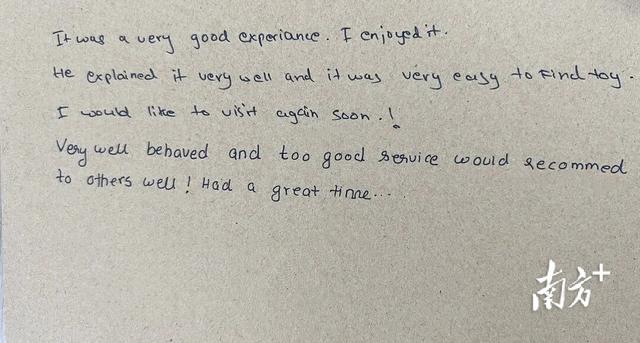 It was a very good experiance. I enjoyed it.
He explained it very well and it was very easy to find toy.
I would like to visit again soon.!
Very well behaved and too good service would recommed
to others well! Had a great time...
南方+